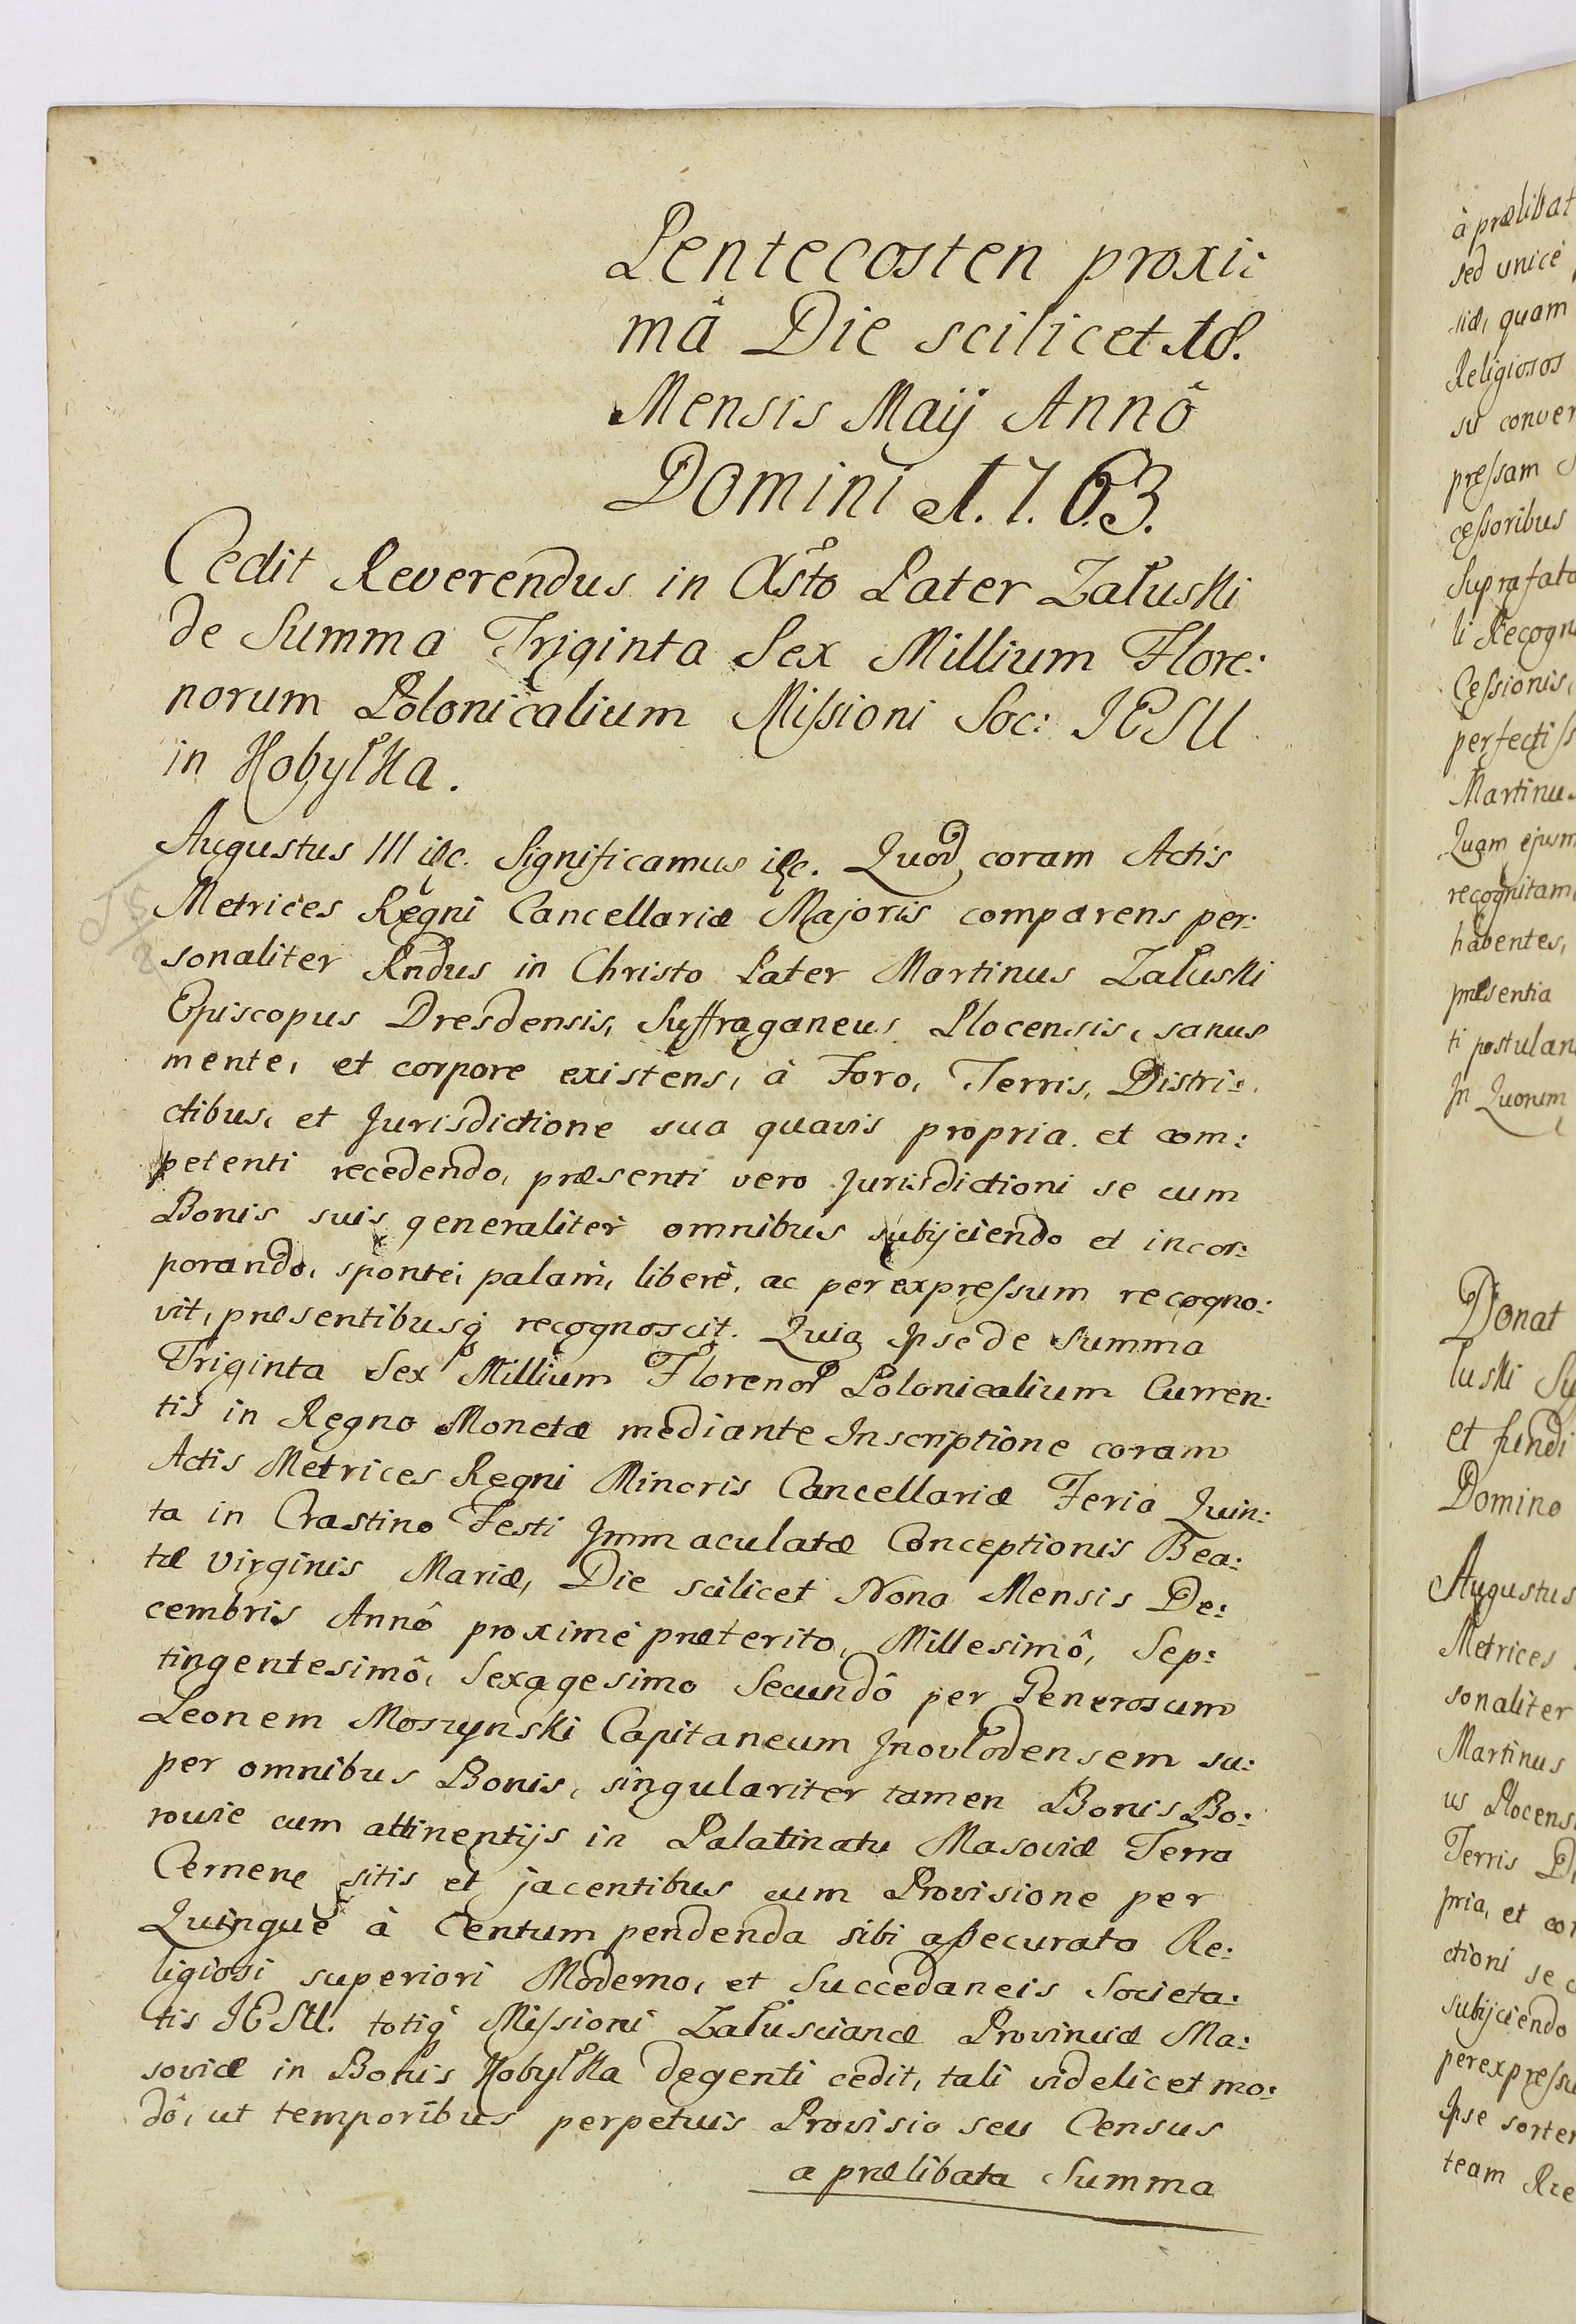 Pentecosten proxi:
mâ Die scilicet 18.
Mensis Maij Annô
Domini 1.7.63.
Cedit Reverendus in Xsto Pater Załuski
de Summa Triginta Sex Millium Flore:
norum Polonicalium Missioni Soc: JESU
in Kobyłka.
Augustus III etc. Significamus etc. Quod coram Actis
Metrices Regni Cancellariæ Majoris comparens per:
sonaliter Rndus in Christo Pater Martinus Załuski
Episcopus Dresdensis, Suffraganeus Plocensis, sanus
mente, et corpore existens, à Foro, Terris, Distri:
ctibus, et Jurisdictione sua quavis propria et com:
petenti recedendo, præsenti vero Jurisdictioni se cum
Bonis suis generaliter omnibus subijciendo et incor:
porando, sponte, palam, liberè, ac per expressum recogno:
vit, præsentibusq recognoscit. Quia Ipse de Summa
Triginta Sex Millium Florenor Polonicalium Curren:
tis in Regno Monetæ mediante Inscriptione coram
Actis Metrices Regni Minoris Cancellariæ Feria Quin:
ta in Crastino Festi Immaculatæ Conceptionis Bea:
tæ Virginis Mariæ, Die scilicet Nona Mensis De:
cembris Annô proximè præterito, Millesimô, Sep:
tingentesimô, Sexagesimo Secundô per Generosum
Leonem Moszynski Capitaneum Inovlodensem su:
per omnibus Bonis, singulariter tamen Bonis Bo:
rowie cum attinentijs in Palatinatu Masoviæ Terra
Cernen sitis et jacentibus cum Provisione per
Quinque à Centum pendenda sibi assecurata Re:
ligiosi superiori Moderno, et Succedaneis Societa:
tis JESU. totiq Missioni Załuscianæ Provinciæ Ma:
soviæ in Bonis Kobyłka degenti cedit, tali videlicet mo:
dô, ut temporibus perpetuis Provisio seu Census
a prælibata Summa
à prælibat
sed unicè
siæ, quam
Religiosos
su conver
pressam
cessoribus
Suprafato
li Recogn
Cessionis,
perfectiss
Martinus
Quam ejusm
recognitam
habentes,
præsentia
ti postulan
In Quorum
Donat
łuski Su
et fundi
Domino
Augustus
Metrices
sonaliter
Martinus
us Plocens
Terris Di
pria, et com
ctioni se c
subijciendo
per expressu
Ipse sortem
team